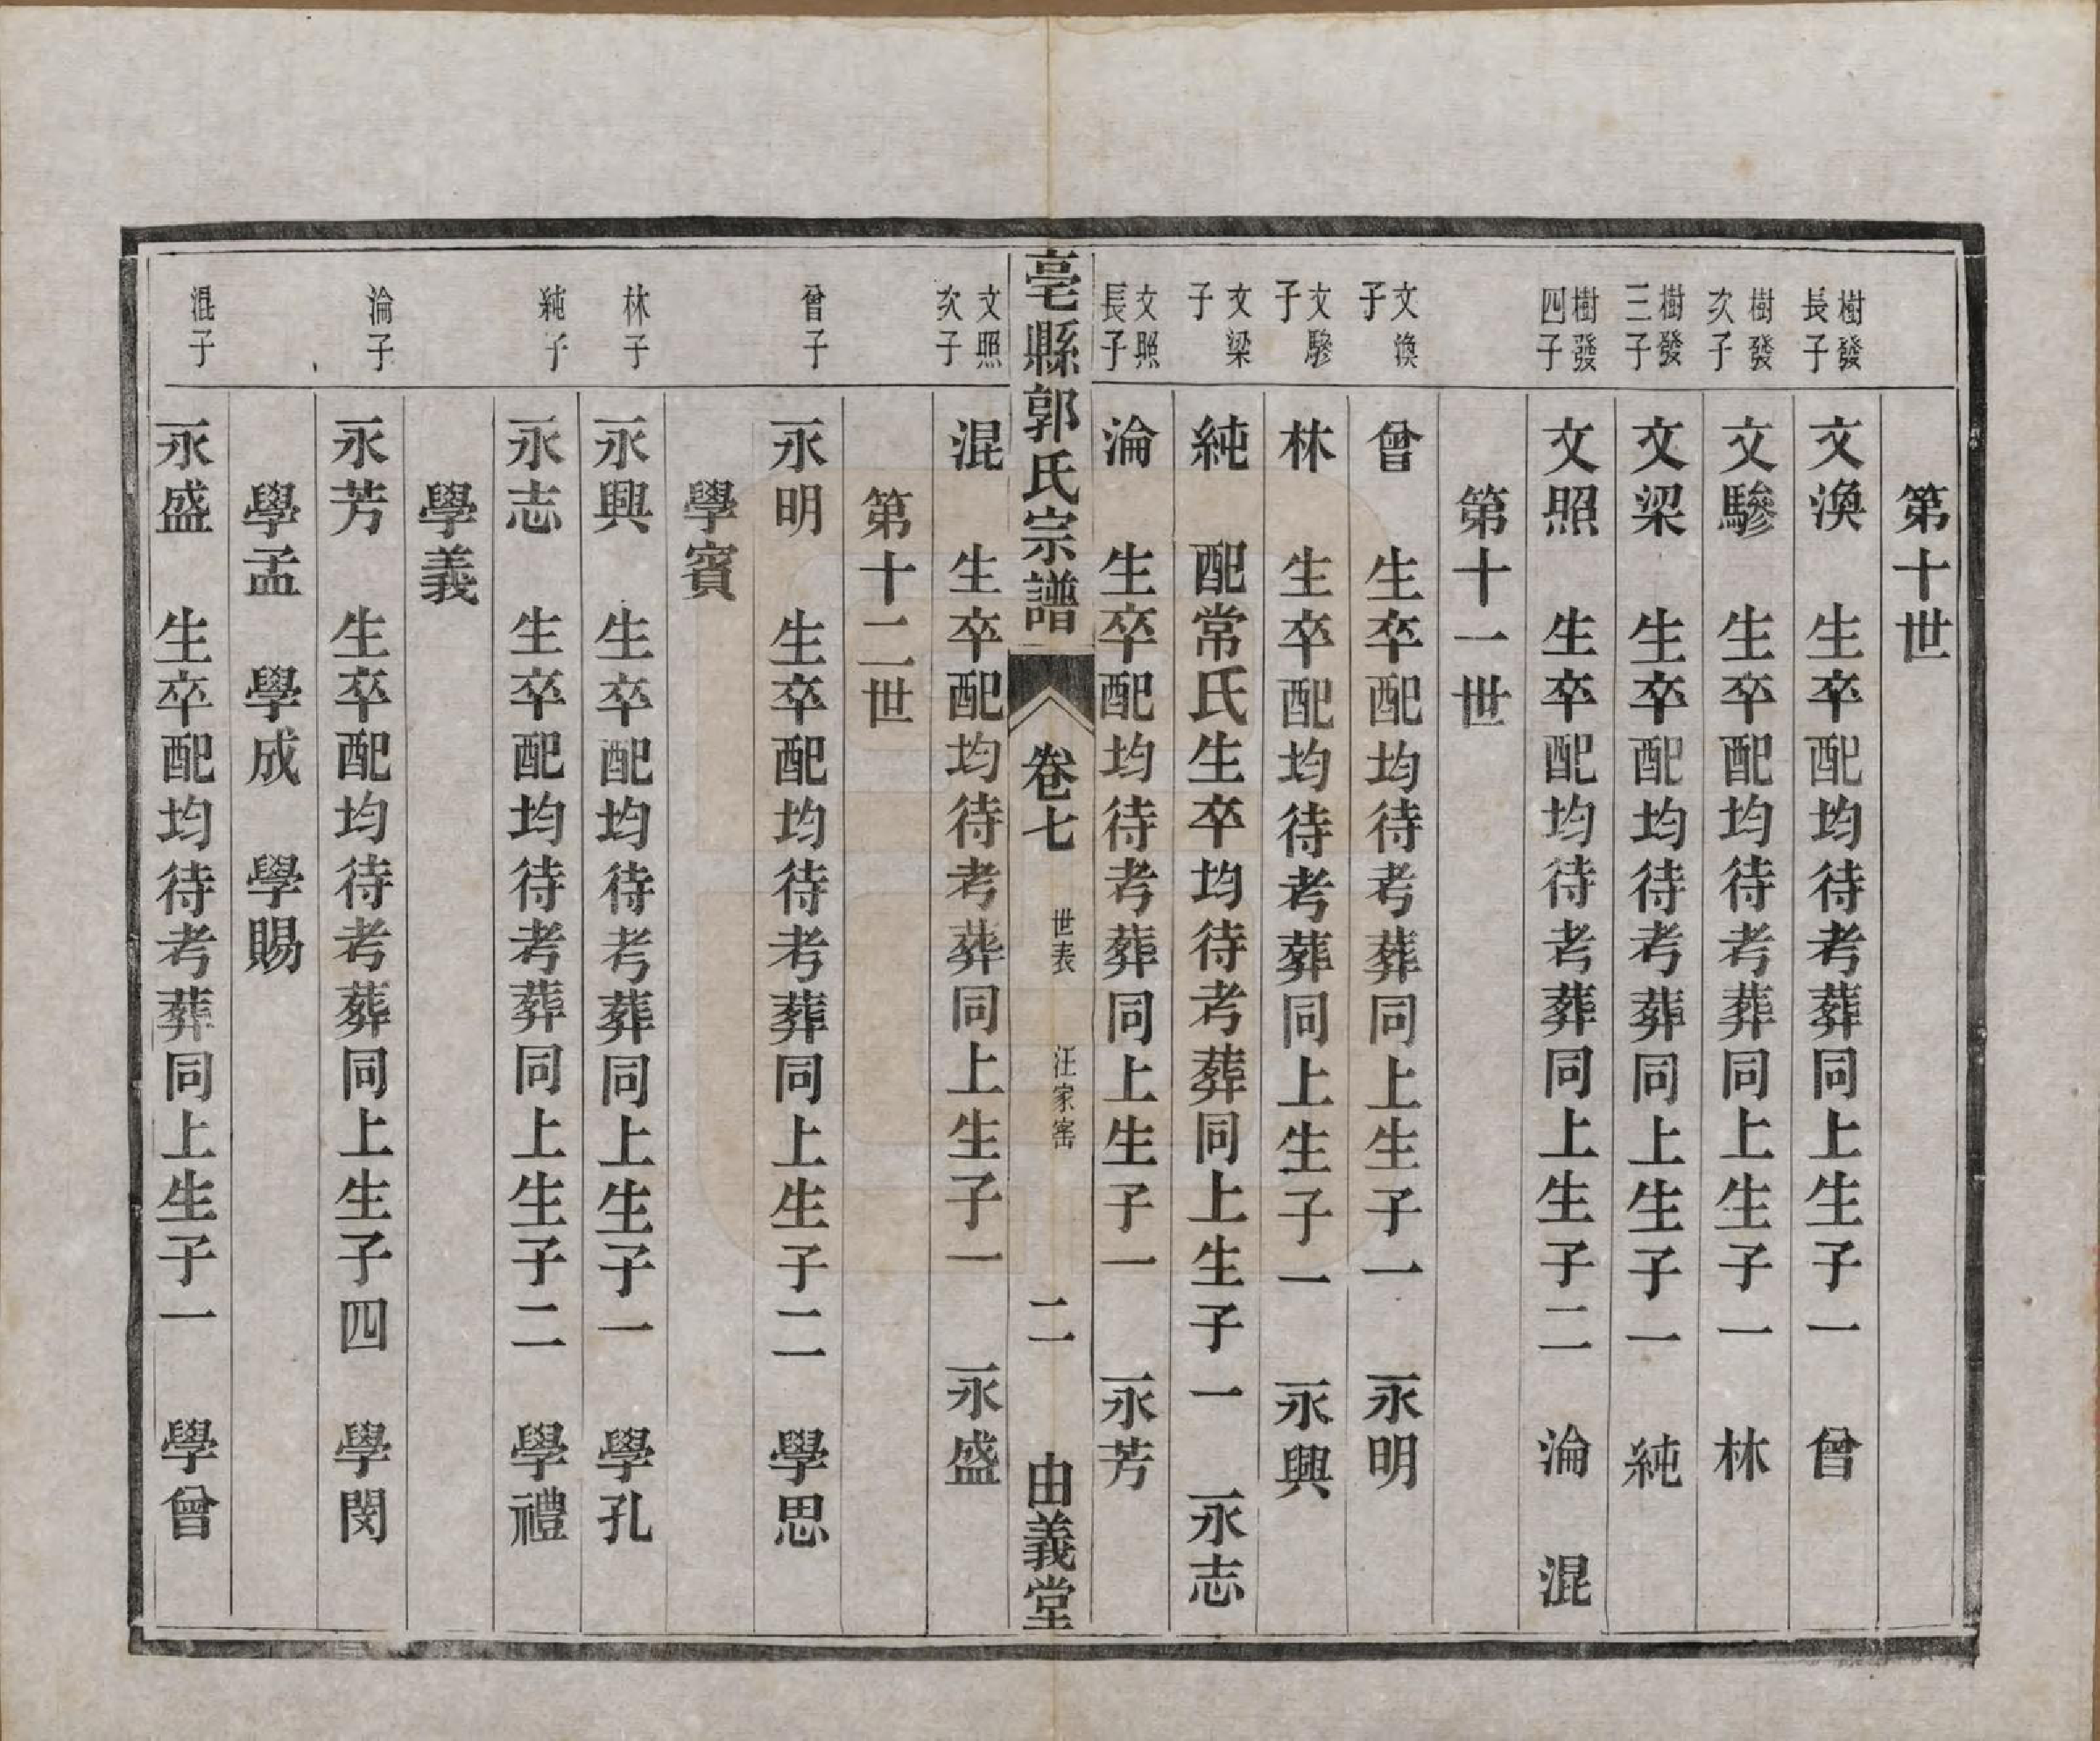 第十世
樹發長子 文渙 生卒配均待考葬同上生子一 曾
樹發次子 文驂 生卒配均待考葬同上生子一 林
樹發三子 文梁 生卒配均待考葬同上生子一 純
樹發四子 文照 生卒配均待考葬同上生子二 淪 混
第十一世
文渙子 曾 生卒配均待考葬同上生子一 永明
文驂子 林 生卒配均待考葬同上生子一 永興
文梁子 純 配常氏生卒均待考葬同上生子一 永志
文照長子 淪 生卒配均待考葬同上生子一 永芳
亳縣郭氏宗譜 卷七 世表 汪家窰 二 由義堂
文照次子 混 生卒配均待考葬同上生子一 永盛
第十二世
曾子 永明 生卒配均待考葬同上生子二 學思
學賓
林子 永興 生卒配均待考葬同上生子一 學孔
純子 永志 生卒配均待考葬同上生子二 學禮
學義
淪子 永芳 生卒配均待考葬同上生子四 學閔
學孟 學成 學賜
混子 永盛 生卒配均待考葬同上生子一 學曾